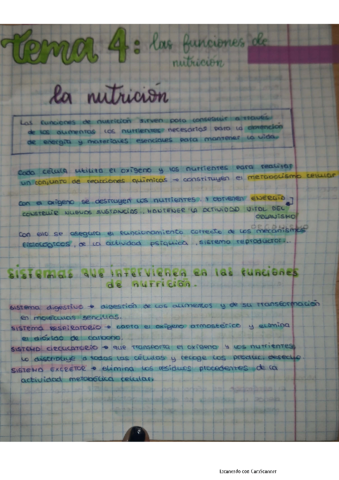 tema 4: las funciones de
nutrición
la nutrición
Las funciones de nutrición sirven para conseguir a través
de los alimentos los nutrientes necesarios para la obtención
de energía y materiales esenciales para mantener la vida.
Cada célula utiliza el oxígeno y los nutrientes para realizar
un conjunto de reacciones químicas → constituyen el metabolismo celular
Con el oxígeno se destruyen los nutrientes y obtener energía
construir nuevas sustancias, mantener la actividad vital del
organismo
Con ello se asegura el funcionamiento correcto de los mecanismos
fisiológicos, de la actividad psíquica, sistema reproductor.
Sistemas que intervienen en las funciones
de nutrición.
Sistema digestivo → digestión de los alimentos y de su transformación
en moléculas sencillas.
Sistema respiratorio → capta el oxígeno atmosférico y elimina
el dióxido de carbono.
Sistema circulatorio → que transporta el oxígeno y los nutrientes,
lo distribuye a todas las células y recoge los produc. desecho
Sistema excretor → elimina los residuos procedentes de la
actividad metabólica celular.
Escaneado con CamScanner